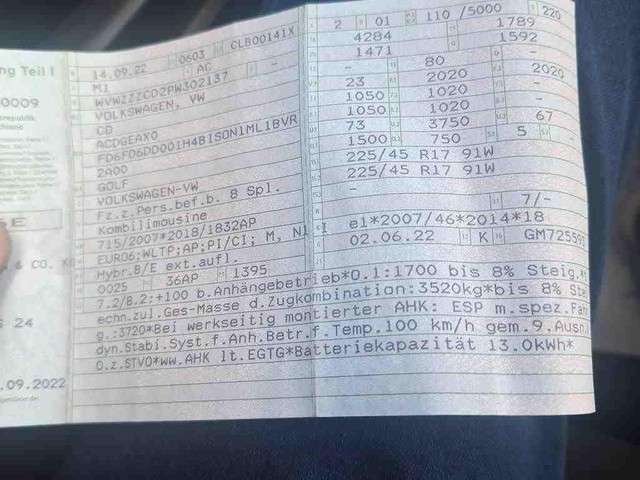 ng Teil I
0009
14.09.22 0603 CLB00141X
M1 AC -
WVWZZZCD2PW302137
VOLKSWAGEN, VW
CD
ACDGEAX0
FD6FD6DD001H4BISON1ML1BVR
2A00
GOLF
VOLKSWAGEN-VW
Fz.z.Pers.bef.b. 8 Spl.
Kombilimousine
715/2007*2018/1832AP
EURO6;WLTP;AP;PI/CI; M, N1 I
Hybr.B/E ext.aufl.
0025 36AP 1395
2 01 110 /5000 220
4284 1789
1471 1592
- 80 -
23 2020 2020
1050 1020
1050 1020 -
73 3750 67
1500 750 5 -
225/45 R17 91W
225/45 R17 91W
-
- 7/-
e1*2007/46*2014*18
02.06.22 K GM72559
7.2/8.2:+100 b.Anhängebetrieb*O.1:1700 bis 8% Steig.*
echn.zul.Ges-Masse d.Zugkombination:3520kg*bis 8% Ste
g.:3720*Bei werkseitig montierter AHK: ESP m.spez.Fah
dyn.Stabi.Syst.f.Anh.Betr.f.Temp.100 km/h gem.9.Ausn.
O.z.STVO*ww.AHK lt.EGTG*Batteriekapazität 13.0kWh*
& CO. K
S 24
.09.2022